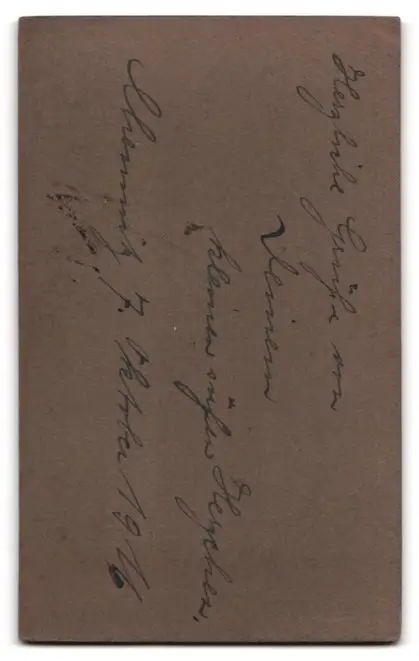 Herzliche Grüße von
Deinem
kleinen süßen Herzchen.
Chemnitz, 7. Oktober 1916